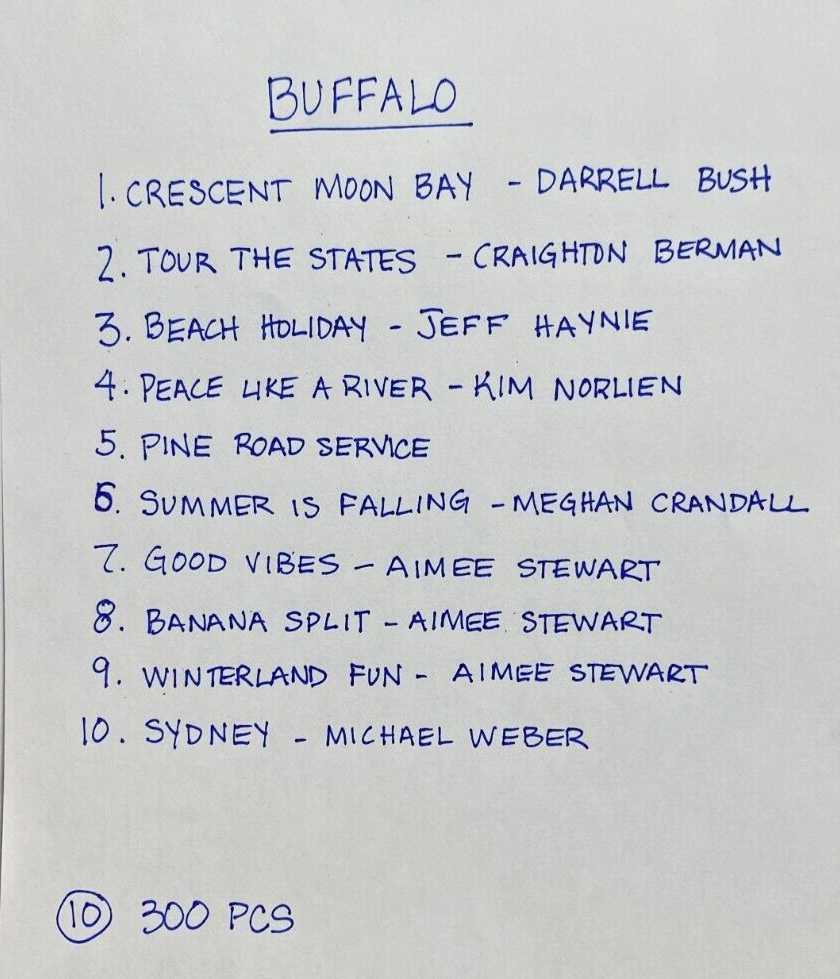 BUFFALO
1. CRESCENT MOON BAY - DARRELL BUSH
2. TOUR THE STATES - CRAIGHTON BERMAN
3. BEACH HOLIDAY - JEFF HAYNIE
4. PEACE LIKE A RIVER - KIM NORLIEN
5. PINE ROAD SERVICE
6. SUMMER IS FALLING - MEGHAN CRANDALL
7. GOOD VIBES - AIMEE STEWART
8. BANANA SPLIT - AIMEE STEWART
9. WINTERLAND FUN - AIMEE STEWART
10. SYDNEY - MICHAEL WEBER
10 300 PCS